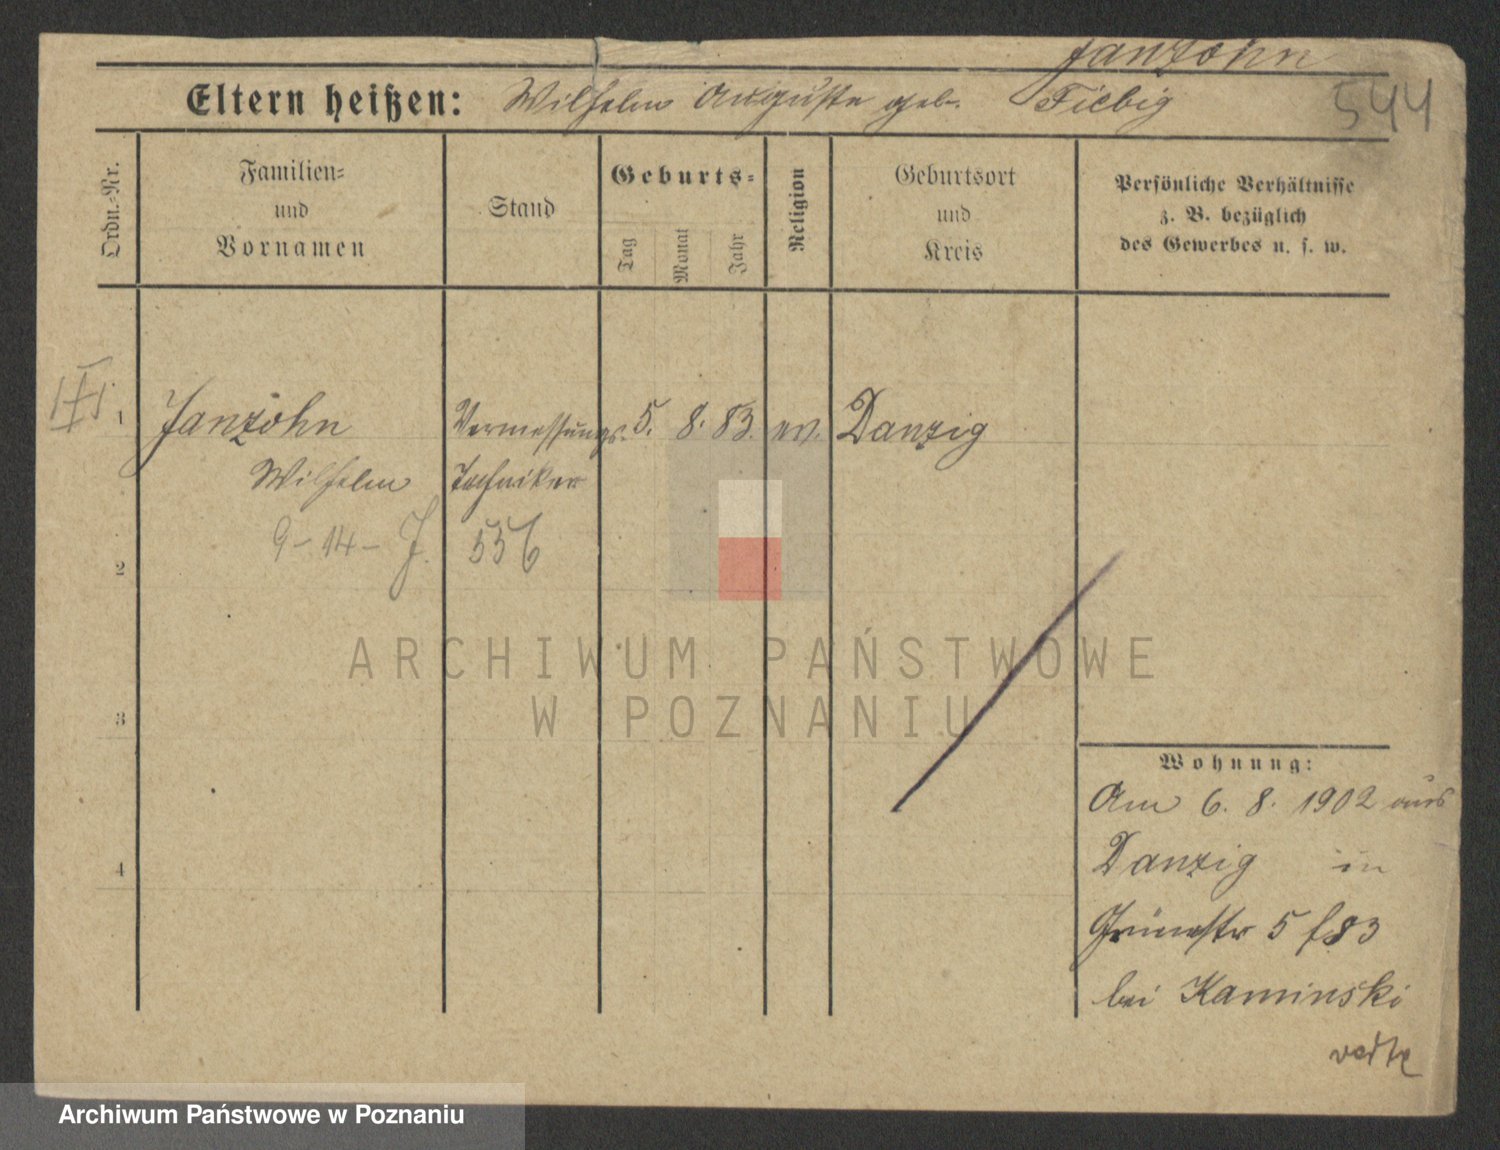 Janzohn
Eltern heißen: Wilhelm Auguste geb. Fiebig 544
Ordn.-Nr.
Familien- und Vornamen
Stand
Geburts-
Tag Monat Jahr
Religion
Geburtsort und Kreis
Persönliche Verhältnisse
z. B. bezüglich
des Gewerbes u. s. w.
1 Janzohn Vermessungs- 5. 8. 83. ev. Danzig
Wilhelm Techniker
9-14- J. 556
2
3
4
ARCHIWUM PAŃSTWOWE
W POZNANIU
Wohnung:
Am 6. 8. 1902 aus
Danzig in
Grünestr 5 f 83
bei Kaminski
verte
Archiwum Państwowe w Poznaniu